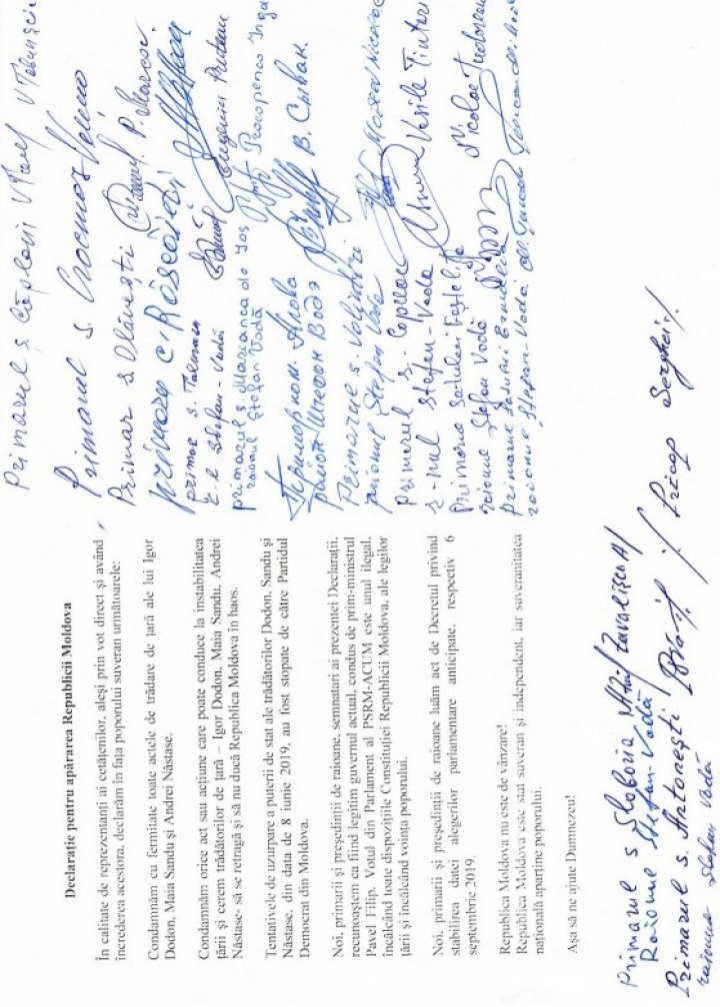 Declarație pentru apărarea Republicii Moldova
În calitate de reprezentanți ai cetățenilor, aleși prin vot direct și având
încrederea acestora, declarăm în fața poporului suveran următoarele:
Condamnăm cu fermitate toate actele de trădare de țară ale lui Igor
Dodon, Maia Sandu și Andrei Năstase.
Condamnăm orice act sau acțiune care poate conduce la instabilitatea
țării și cerem trădătorilor de țară – Igor Dodon, Maia Sandu, Andrei
Năstase- să se retragă și să nu ducă Republica Moldova în haos.
Tentativele de uzurpare a puterii de stat ale trădătorilor Dodon, Sandu și
Năstase, din data de 8 iunie 2019, au fost stopate de către Partidul
Democrat din Moldova.
Noi, primarii și președinții de raioane, semnatari ai prezentei Declarații,
recunoaștem ca fiind legitim guvernul actual, condus de prim-ministrul
Pavel Filip. Votul din Parlament al PSRM-ACUM este unul ilegal,
încălcând toate dispozițiile Constituției Republicii Moldova, ale legilor
țării și încălcând voința poporului.
Noi, primarii și președinții de raioane luăm act de Decretul privind
stabilirea datei alegerilor parlamentare anticipate, respectiv 6
septembrie 2019.
Republica Moldova nu este de vânzare!
Republica Moldova este stat suveran și independent, iar suveranitatea
națională aparține poporului.
Așa să ne ajute Dumnezeu!
Primarul s Slobozia
Raionul Ștefan-Vodă
Primarul s. Antonești / Pricop Serghei /
raionul Ștefan Vodă
Primarul s Căplani
Primarul s. Crocmaz
Primar s Olănești
primaru c. Răscăieți
primar s. Talmaza
r-l Ștefan-Vodă
primarul s. Purcari
primarul s.
de Jos Procopenco Inga
raionul Ștefan Vodă
Примар ком.
район Штефан Водэ В. Сывак.
Primarul s. Volintiri
raionul Ștefan Vodă
Primarul s. Copceac
r-nul Ștefan-Vodă Vasile
Primarul Satului
raionul Ștefan Vodă Nicolae Tudoreanu
Primarul satului Ermoclia
raionul Ștefan-Vodă